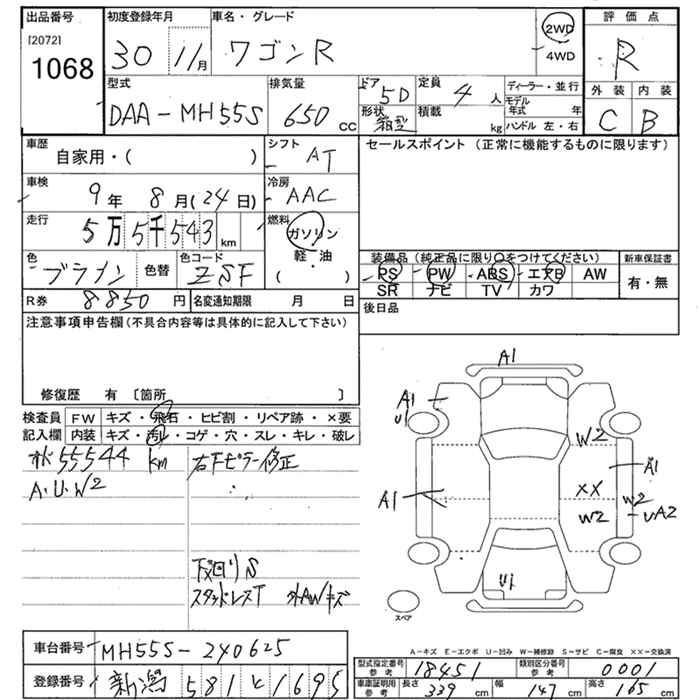 出品番号 初度登録年月 車名・グレード 評価点
[2072] 1068
30 11月 ワゴンR 2WD 4WD R
型式 排気量 ドア 定員 ディーラー・並行 外装 内装
DAA-MH55S 650cc 5D 4人 モデル年式 年 C B
形状 箱型 積載 kg ハンドル 左・右
車歴 シフト セールスポイント (正常に機能するものに限ります)
自家用・( ) AT
車検 冷房
9年 8月(24日) AAC
走行 燃料
5万5千543km ガソリン
軽・油
( )
色 色替 色コード 装備品(純正品に限り○をつけてください) 新車保証書
ブラウン ZSF PS PW ABS エアB AW 有・無
SR ナビ TV カワ
R券 8850円 名変通知期限 月 日 後日品
注意事項申告欄(不具合内容等は具体的に記入して下さい)
修復歴 有 〔箇所 〕
検査員 FW キズ・飛石・ヒビ割・リペア跡・×要
記入欄 内装 キズ・汚レ・コゲ・穴・スレ・キレ・破レ
55544km 右Fピラー修正
A・U・W2
下回りS
スタッドレスT 外AWキズ
A1
A1
U1
W2
A1
A1
XX
W2
W2
UA2
U1
スペア
A-キズ E-エクボ U-凹み W-補修跡 S-サビ C-腐食 XX-交換済
車台番号 MH55S-240625
登録番号 新潟 581 と 1695
型式指定番号 参考 18451 類別区分番号 参考 0001
車庫証明用 参考 長さ 339cm 幅 147cm 高さ 165cm